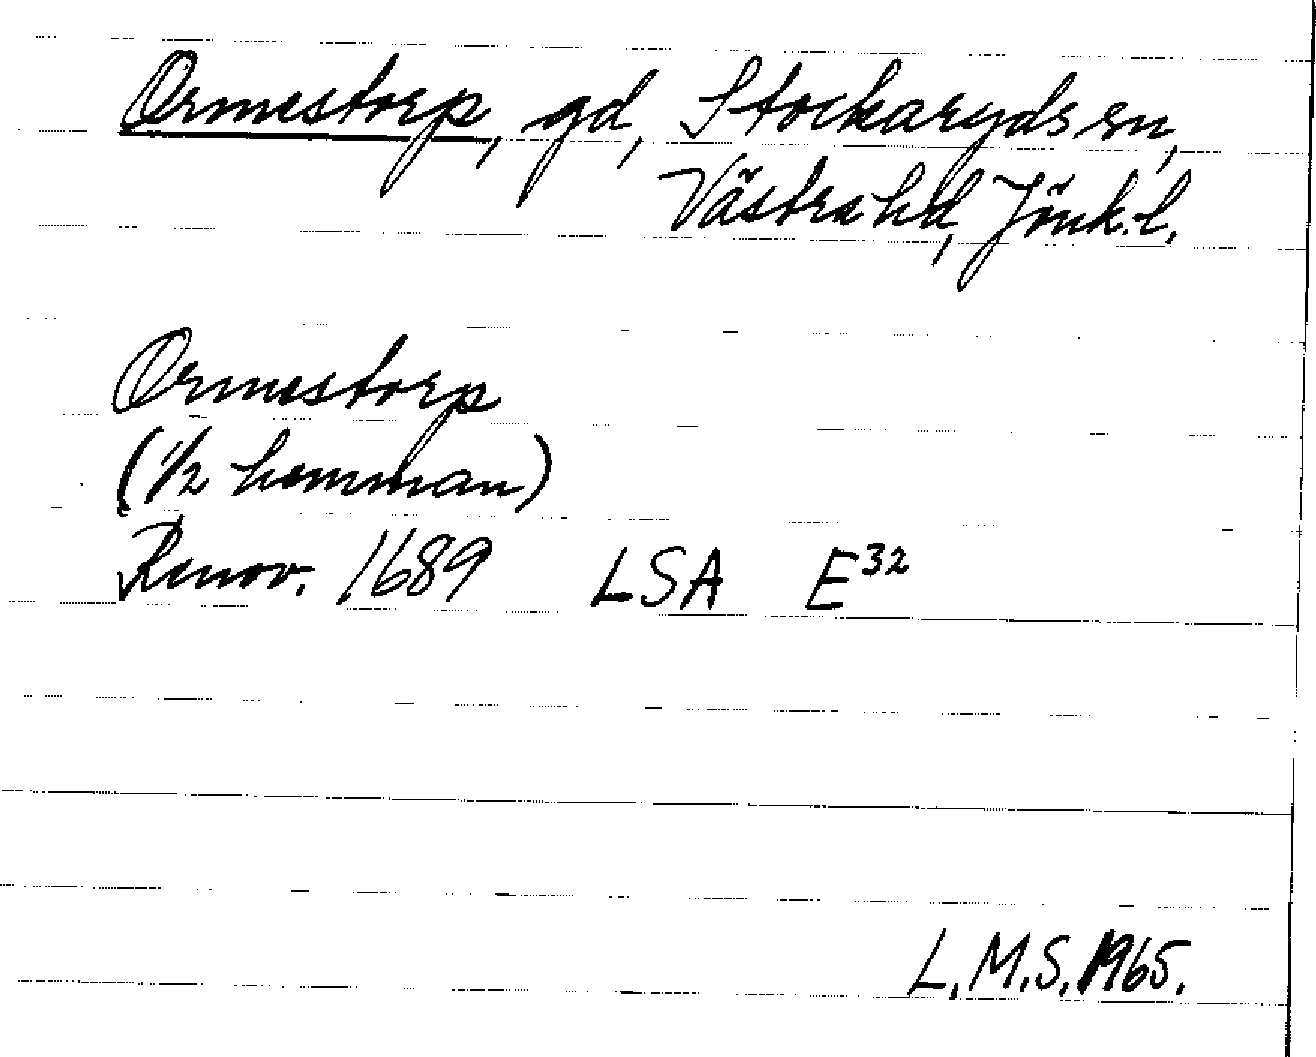 Ormestorp, gd, Stockaryds sn,
Västra hd, Jönk. l.
Ormestorp
(1/2 hemman)
Renov. 1689 LSA E32
L.M.S. 1965.